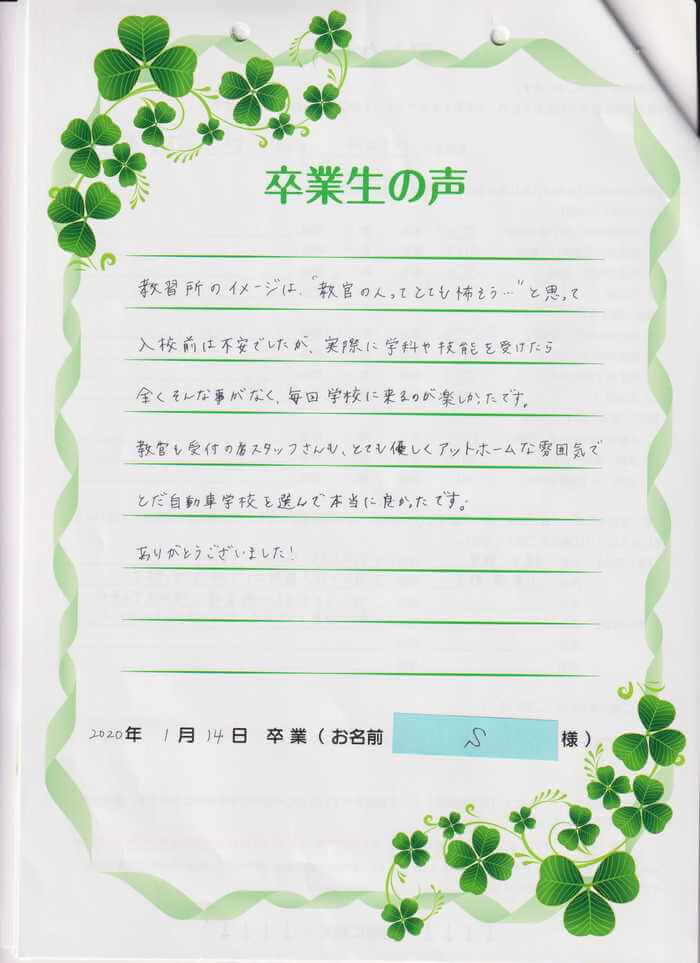 卒業生の声
教習所のイメージは、"教官の人ってとても怖そう…"と思って
入校前は不安でしたが、実際に学科や技能を受けたら
全くそんな事がなく、毎回学校に来るのが楽しかったです。
教官も受付の方スタッフさんも、とても優しくアットホームな雰囲気で
とだ自動車学校を選んで本当に良かったです。
ありがとうございました!
2020年 1月14日 卒業(お名前 S 様)